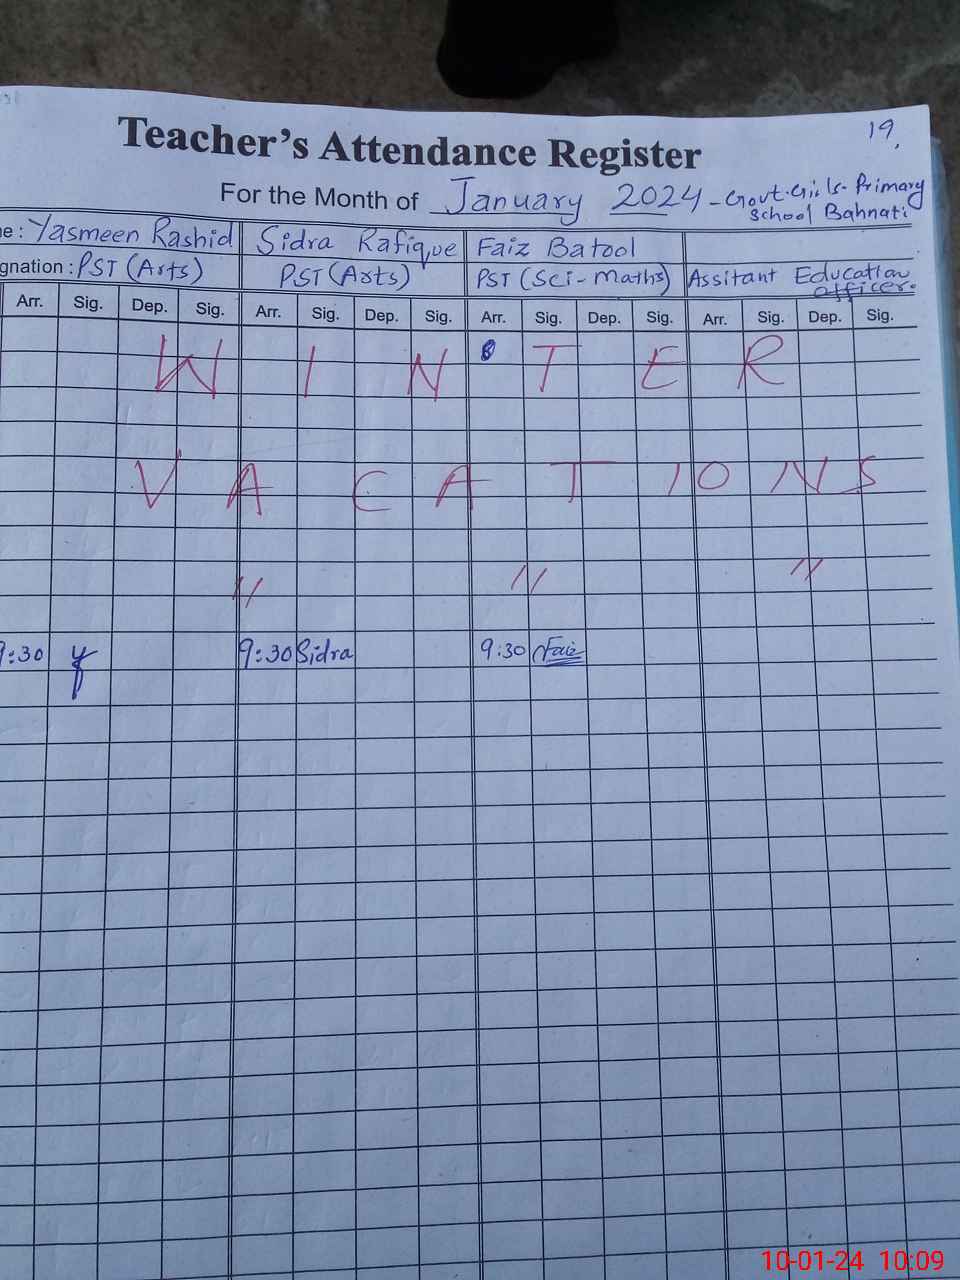 19.
Teacher's Attendance Register
For the Month of January 2024 - Govt. Girls. Primary
School Bahnati
e : Yasmeen Rashid Sidra Rafique Faiz Batool
gnation : PST (Arts) PST (Arts) PST (Sci-Maths) Assitant Education
officer.
Arr. Sig. Dep. Sig. Arr. Sig. Dep. Sig. Arr. Sig. Dep. Sig. Arr. Sig. Dep. Sig.
W I N T E R
V A C A T I O N S
〃 〃 〃
9:30 9:30 Sidra 9:30 Faiz
10-01-24 10:09